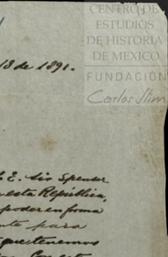 CENTRO DE
ESTUDIOS
DE HISTORIA
DE MEXICO
FUNDACIÓN
Carlos Slim
13 de 1891.
E. Sir Spenser
esta República,
poder en forma
para
que tenemos